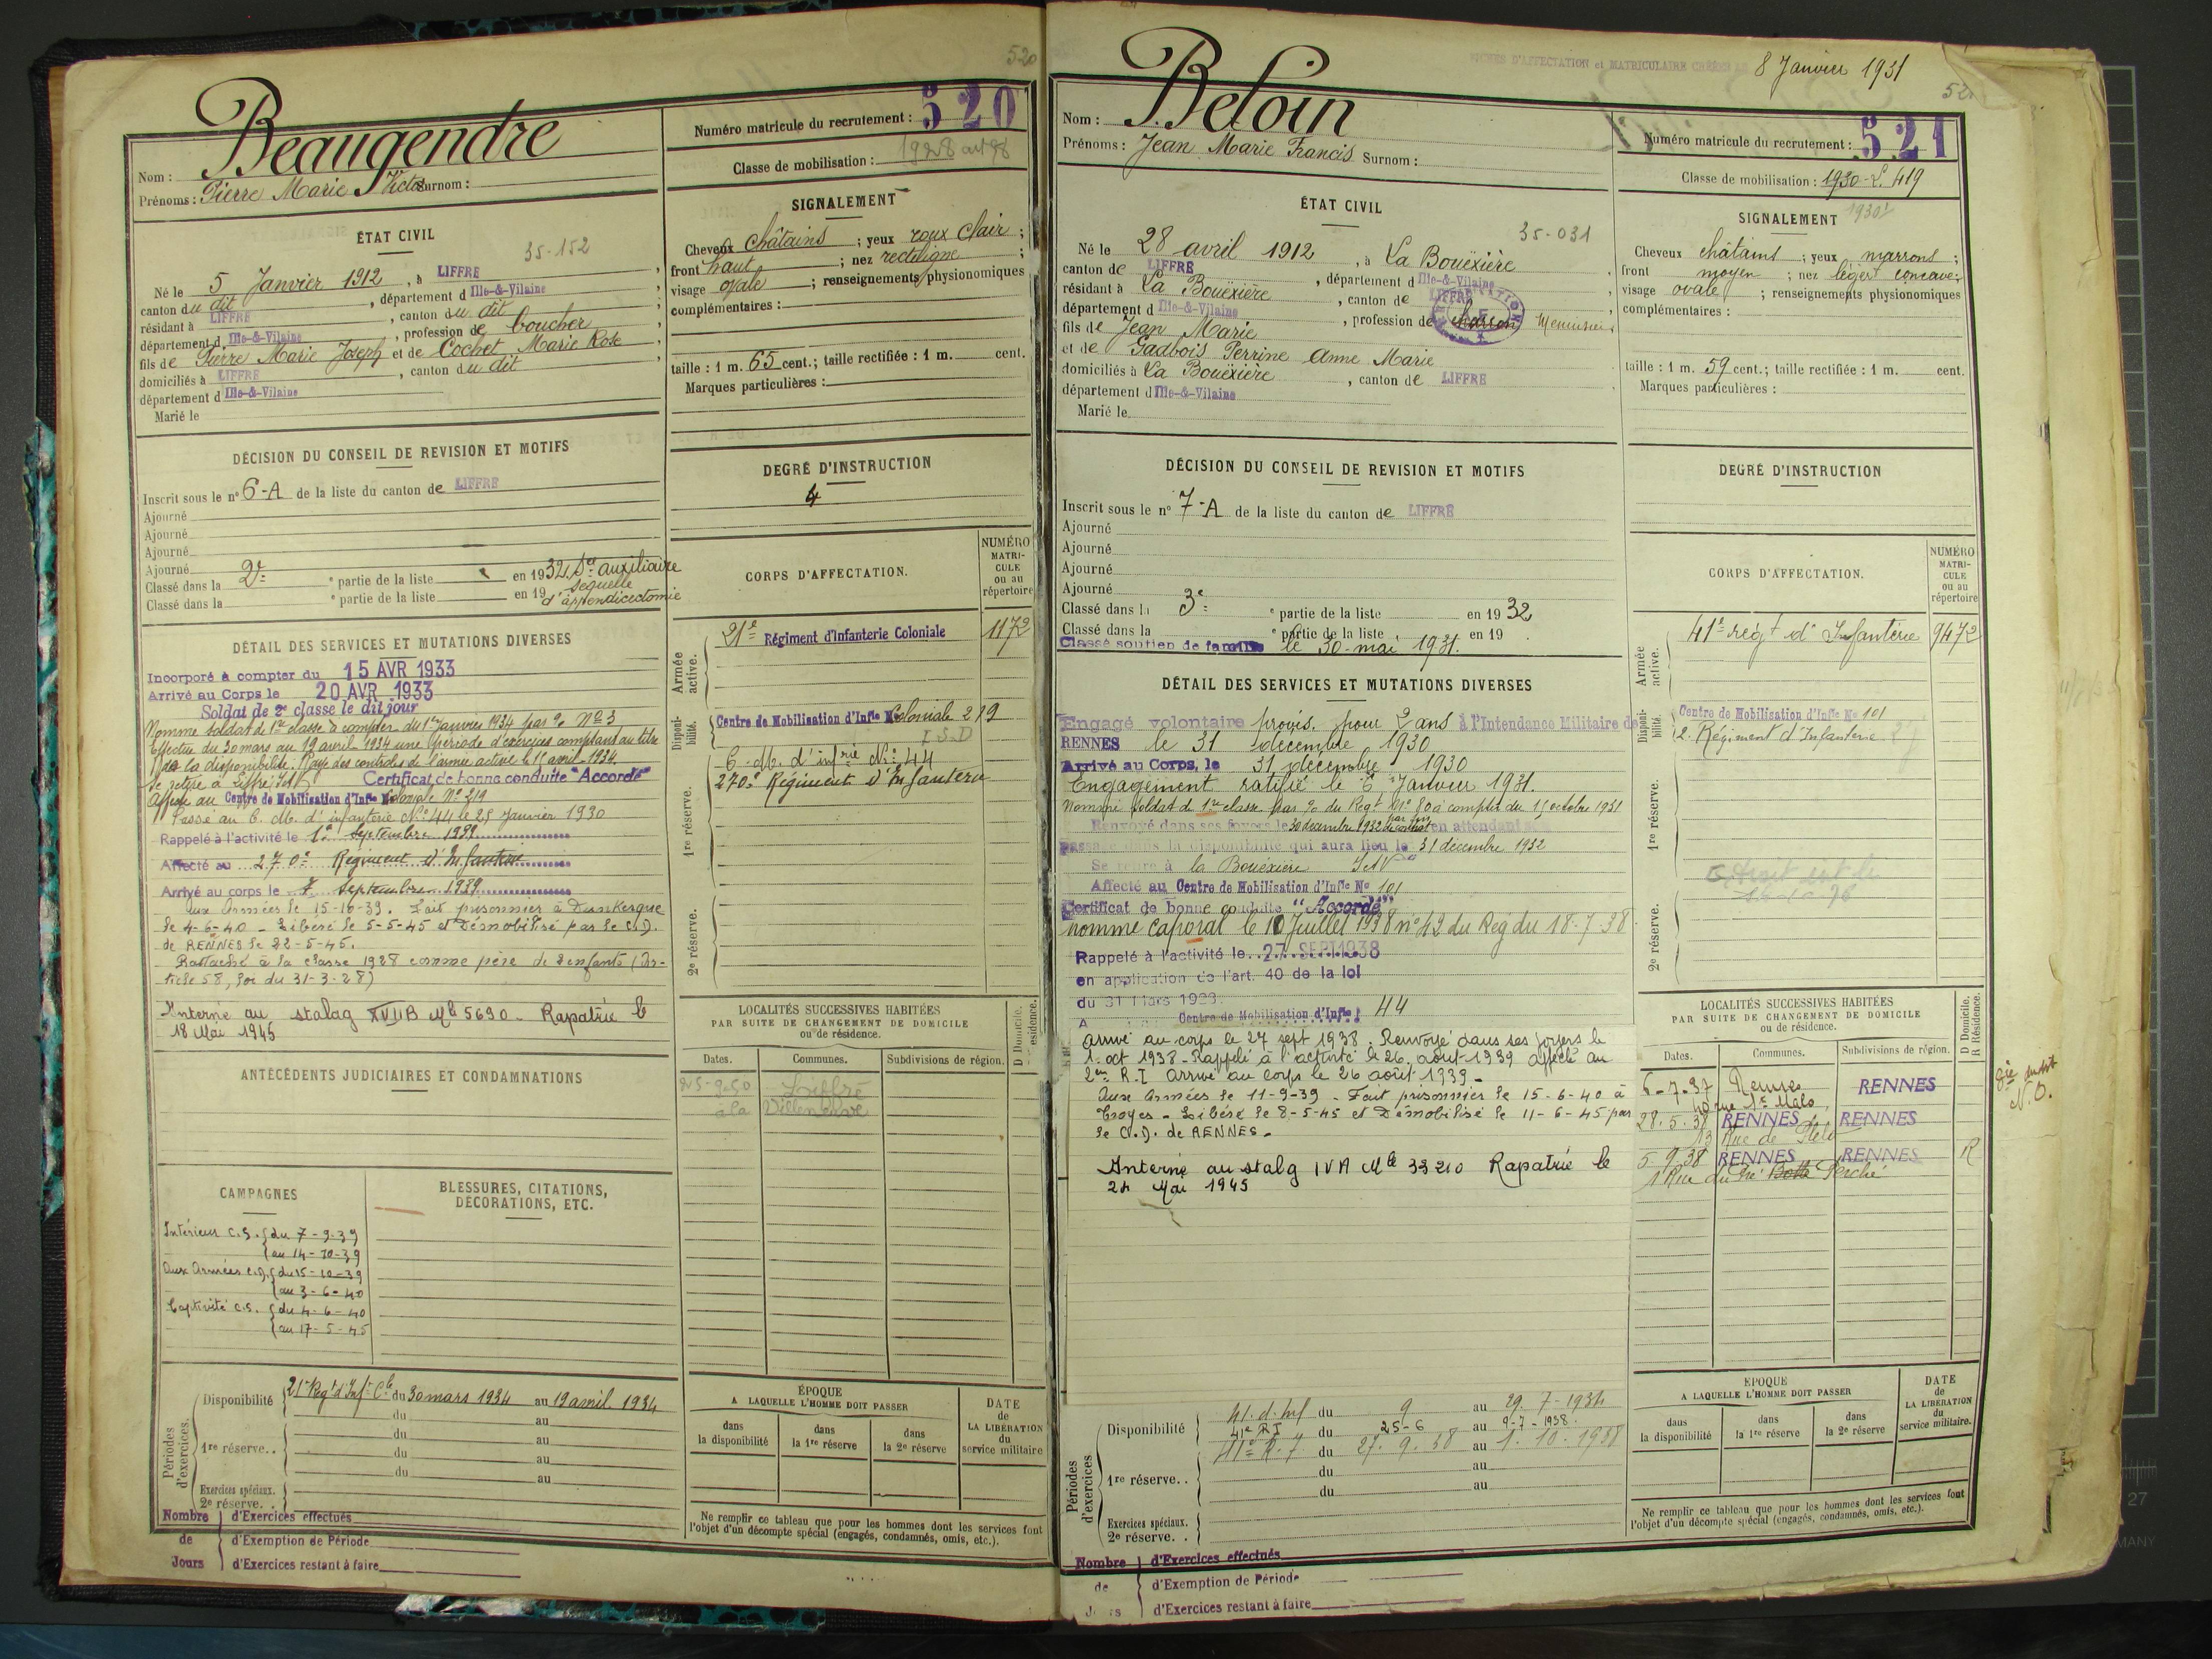 520
Beaugendre
Nom :
Prénoms : Pierre Marie Victor Surnom :
Numéro matricule du recrutement : 520
Classe de mobilisation : 1928
ÉTAT CIVIL
35-152
Né le 5 Janvier 1912, à LIFFRÉ
canton du dit, département d Ille-&-Vilaine
résidant à LIFFRÉ, canton du dit
département d Ille-&-Vilaine, profession de boucher
fils de Pierre Marie Joseph et de Cochet Marie Rose
domiciliés à LIFFRÉ, canton du dit
département d Ille-&-Vilaine
Marié le
SIGNALEMENT
Cheveux châtains ; yeux roux clair ;
front haut ; nez rectiligne ;
visage ovale ; renseignements physionomiques
complémentaires :
taille : 1 m. 65 cent.; taille rectifiée : 1 m. cent.
Marques particulières :
DÉCISION DU CONSEIL DE REVISION ET MOTIFS
Inscrit sous le n° 6-A de la liste du canton de LIFFRÉ
Ajourné
Ajourné
Ajourné
Ajourné
Classé dans la 2e ° partie de la liste en 1932 Sce auxiliaire
séquelle
Classé dans la ° partie de la liste en 19 d'appendicectomie
DEGRÉ D'INSTRUCTION
4
CORPS D'AFFECTATION.
NUMÉRO
MATRI-
CULE
ou au
répertoire
Armée active.
21e Régiment d'Infanterie Coloniale 1172
Disponibilité.
Centre de Mobilisation d'Infie Coloniale 219
I.S.D
C. M. d'infrie No 44
270e Régiment d'Infanterie
1re réserve.
2e réserve.
DÉTAIL DES SERVICES ET MUTATIONS DIVERSES
Incorporé à compter du 15 AVR 1933
Arrivé au Corps le 20 AVR 1933
Soldat de 2e classe le dit jour
Nommé soldat de 1re classe à compter du 1er janvier 1934 par No 3
Effectue du 30 mars au 19 avril 1934 une période d'exercices comptant au titre
de la disponibilité. Rayé des contrôles de l'armée active le 15 avril 1934.
Se retire à Liffré I&V Certificat de bonne conduite "Accordé"
Affecté au Centre de Mobilisation d'Infie Coloniale No 219
Passé au C. M. d'infanterie No 44 le 25 Janvier 1930
Rappelé à l'activité le 1er Septembre 1939
Affecté au 270e Régiment d'Infanterie
Arrivé au corps le 7 Septembre 1939
aux Armées le 15-10-39. Fait prisonnier à Dunkerque
le 4-6-40 - Libéré le 5-5-45 et Démobilisé par le C.D.
de RENNES le 22-5-45.
Rattaché à la classe 1928 comme père de 2 enfants (Ar-
ticle 58, loi du 31-3-28)
Interné au stalag XVII B Mle 5690 - Rapatrié le
18 Mai 1945
ANTÉCÉDENTS JUDICIAIRES ET CONDAMNATIONS
LOCALITÉS SUCCESSIVES HABITÉES
PAR SUITE DE CHANGEMENT DE DOMICILE
ou de résidence.
Dates. Communes. Subdivisions de région.
25-9-50 Liffré
à la Villeneuve
CAMPAGNES
Intérieur C.S. du 7-9-39
au 14-10-39
Aux Armées C.D. du 15-10-39
au 3-6-40
Captivité C.S. du 4-6-40
au 17-5-45
BLESSURES, CITATIONS,
DÉCORATIONS, ETC.
Périodes d'exercices.
Disponibilité 21e Regt d'Inf. Cle du 30 mars 1934 au 19 avril 1934
du au
1re réserve.. du au
du au
du au
Exercices spéciaux.
2e réserve. .
Nombre d'Exercices effectués
de d'Exemption de Période
Jours d'Exercices restant à faire
ÉPOQUE
A LAQUELLE L'HOMME DOIT PASSER
dans la disponibilité
dans la 1re réserve
dans la 2e réserve
DATE
de
LA LIBÉRATION
du
service militaire
Ne remplir ce tableau que pour les hommes dont les services font
l'objet d'un décompte spécial (engagés, condamnés, omis, etc.).
FICHES D'AFFECTATION et MATRICULAIRE CRÉÉES LE 8 Janvier 1931
Beloin
Nom :
Prénoms : Jean Marie Francis Surnom :
Numéro matricule du recrutement : 521
Classe de mobilisation : 1930-L. 419
ÉTAT CIVIL
35-031
Né le 28 avril 1912, à La Bouëxière
canton de LIFFRÉ, département d Ille-&-Vilaine
résidant à La Bouëxière, canton de LIFFRÉ
département d Ille-&-Vilaine, profession de charron Menuisier
fils de Jean Marie
et de Gadbois Perrine Anne Marie
domiciliés à La Bouëxière, canton de LIFFRÉ
département d Ille-&-Vilaine
Marié le
SIGNALEMENT
Cheveux châtains ; yeux marrons ;
front moyen ; nez légert concave ;
visage ovale ; renseignements physionomiques
complémentaires :
taille : 1 m. 59 cent.; taille rectifiée : 1 m. cent.
Marques particulières :
DÉCISION DU CONSEIL DE REVISION ET MOTIFS
Inscrit sous le n° 7-A de la liste du canton de LIFFRÉ
Ajourné
Ajourné
Ajourné
Ajourné
Classé dans la 3e ° partie de la liste en 1932
Classé dans la ° partie de la liste en 19
Classé soutien de famille le 30 mai 1931.
DEGRÉ D'INSTRUCTION
CORPS D'AFFECTATION.
NUMÉRO
MATRI-
CULE
ou au
répertoire
Armée active.
41e régt d'Infanterie 9472
Disponibilité.
Centre de Mobilisation d'Infie No 101
2. Régiment d'Infanterie
1re réserve.
2e réserve.
DÉTAIL DES SERVICES ET MUTATIONS DIVERSES
Engagé volontaire provis. pour 2 ans à l'Intendance Militaire de
RENNES le 31 décembre 1930
Arrivé au Corps, le 31 décembre 1930
Engagement ratifié le 6 Janvier 1931.
Nommé soldat de 1re classe par du Regt No 80 à compter du 15 octobre 1931
Renvoyé dans ses foyers le 30 décembre 1932 en attendant son
passage dans la disponibilité qui aura lieu le 31 décembre 1932
Se retire à la Bouëxière I&V
Affecté au Centre de Mobilisation d'Infie No 101
Certificat de bonne conduite "Accordé"
nommé caporal le 10 Juillet 1938 n° 42 du Reg du 18-7-38
Rappelé à l'activité le 27 SEPT 1938
en application de l'art. 40 de la loi
du 31 Mars 1928.
Centre de Mobilisation d'Infie 44
arrivé au corps le 27 sept 1938. Renvoyé dans ses foyers le
1. oct 1938 - Rappelé à l'activité le 26. août 1939 affecté au
2me R.I arrivé au corps le 26 août 1939 -
Aux Armées le 11-9-39 - Fait prisonnier le 15-6-40 à
Troyes - Libéré le 8-5-45 et Démobilisé le 11-6-45 par
le C.D. de RENNES -
Interné au stalg IV A Mle 33210 Rapatrié le
24 Mai 1945
LOCALITÉS SUCCESSIVES HABITÉES
PAR SUITE DE CHANGEMENT DE DOMICILE
ou de résidence.
D Domicile.
R Résidence.
Dates. Communes. Subdivisions de région.
6-7-37 Rennes RENNES
40 rue St Malo
28.5.38 RENNES RENNES
13 Rue de
5-9-38 RENNES RENNES R
1 Rue du Pré Perché
Périodes d'exercices
Disponibilité 41. d. inf du 9 au 29.7-1934
41e RI du 25-6 au 9-7-1938.
41e R.I. du 27.9.38 au 1.10.1938
1re réserve.. du au
du au
Exercices spéciaux.
2e réserve. .
Nombre d'Exercices effectués
de d'Exemption de Période
Jours d'Exercices restant à faire
ÉPOQUE
A LAQUELLE L'HOMME DOIT PASSER
dans la disponibilité
dans la 1re réserve
dans la 2e réserve
DATE
de
LA LIBÉRATION
du
service militaire.
Ne remplir ce tableau que pour les hommes dont les services font
l'objet d'un décompte spécial (engagés, condamnés, omis, etc.).
27